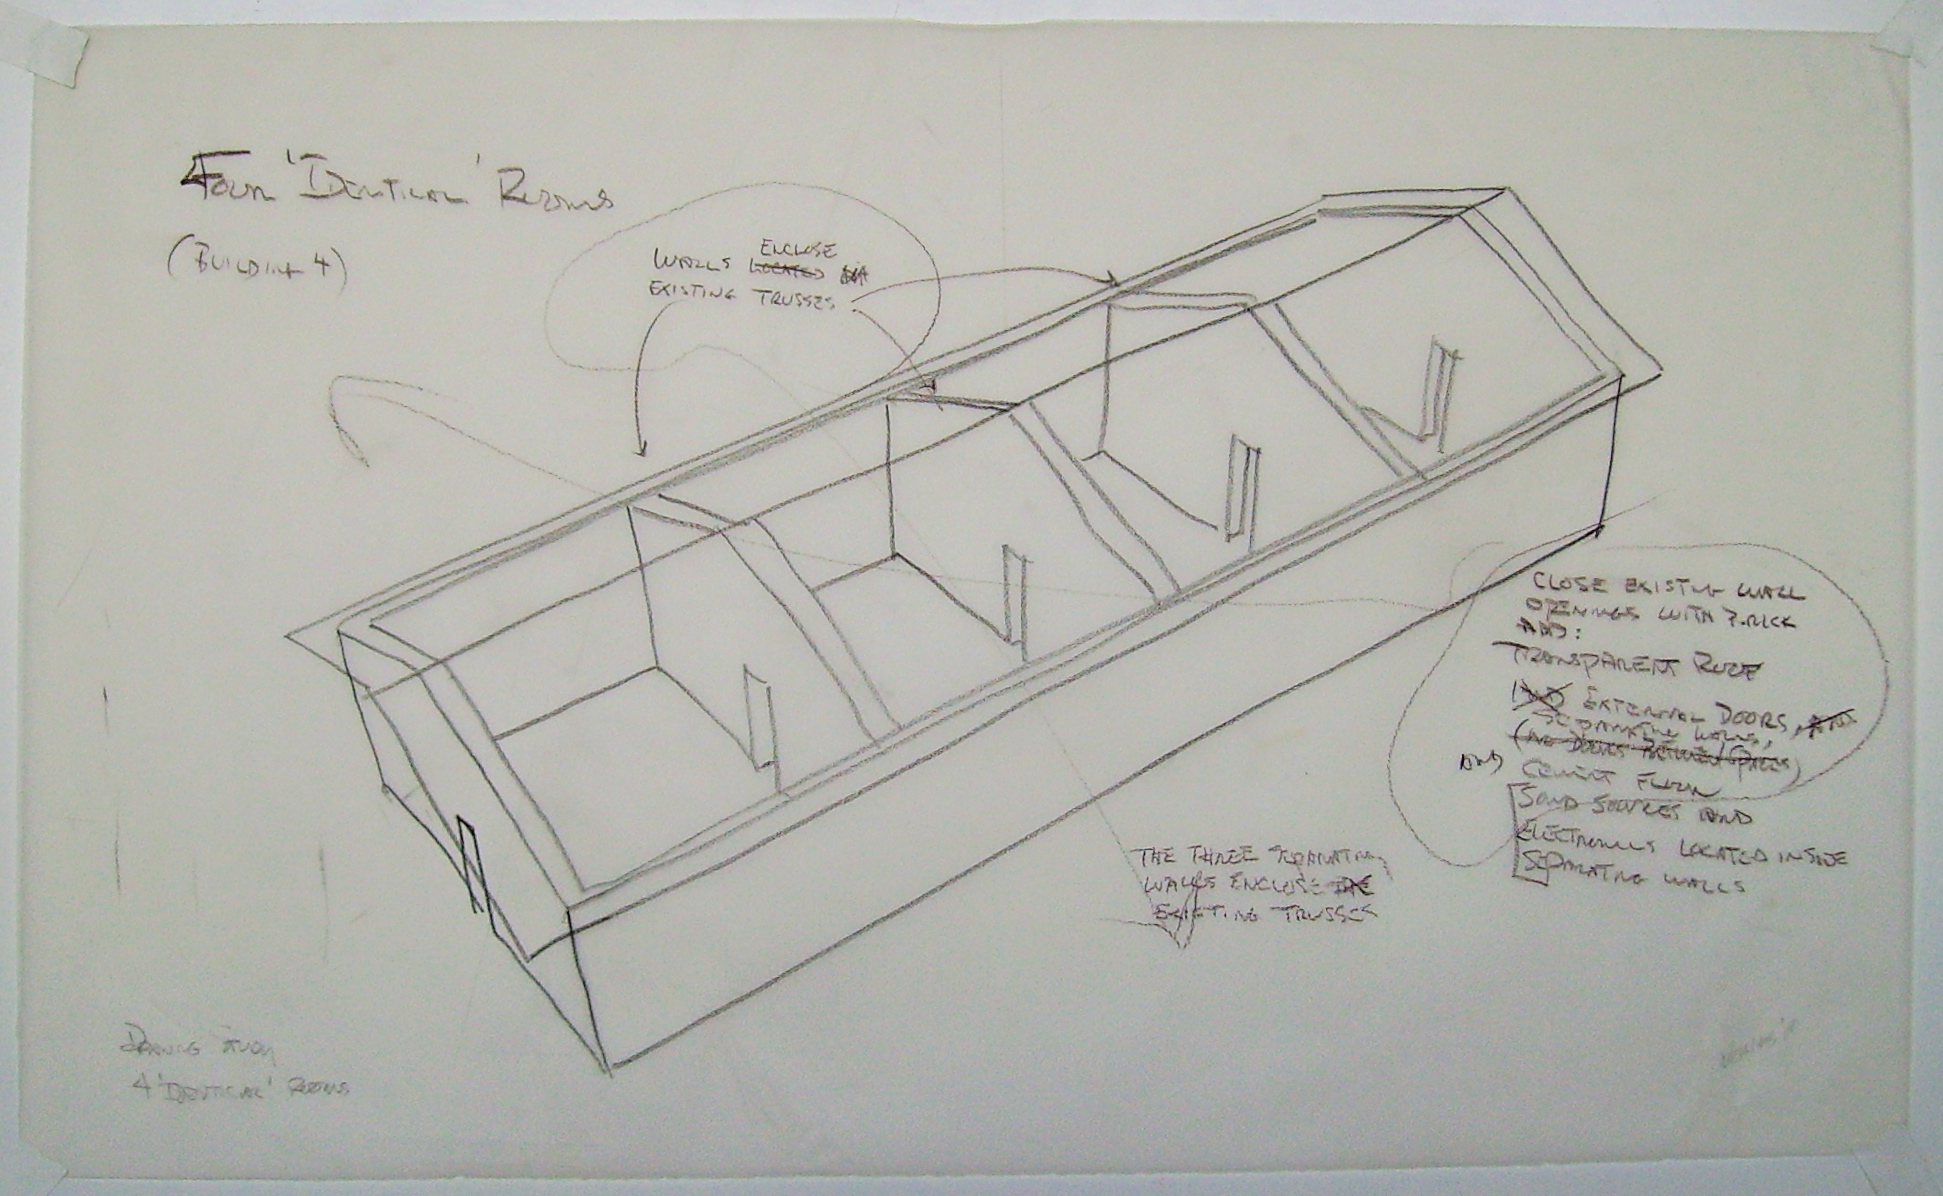 Four 'Identical' Rooms
(Building 4)
WALLS ENCLOSE
LOCATED
EXISTING TRUSSES
CLOSE EXISTING WALL
OPENINGS WITH BRICK
ADD:
TRANSPARENT ROOF
EXTERNAL DOORS, AND
SEPARATING WALLS,
(NO DOORS BETWEEN SPACES)
AND CEMENT FLOOR
SOUND SOURCES AND
ELECTRONICS LOCATED INSIDE
SEPARATING WALLS
THE THREE SEPARATING
WALLS ENCLOSE THE
EXISTING TRUSSES
Drawing Study
4 'Identical' Rooms